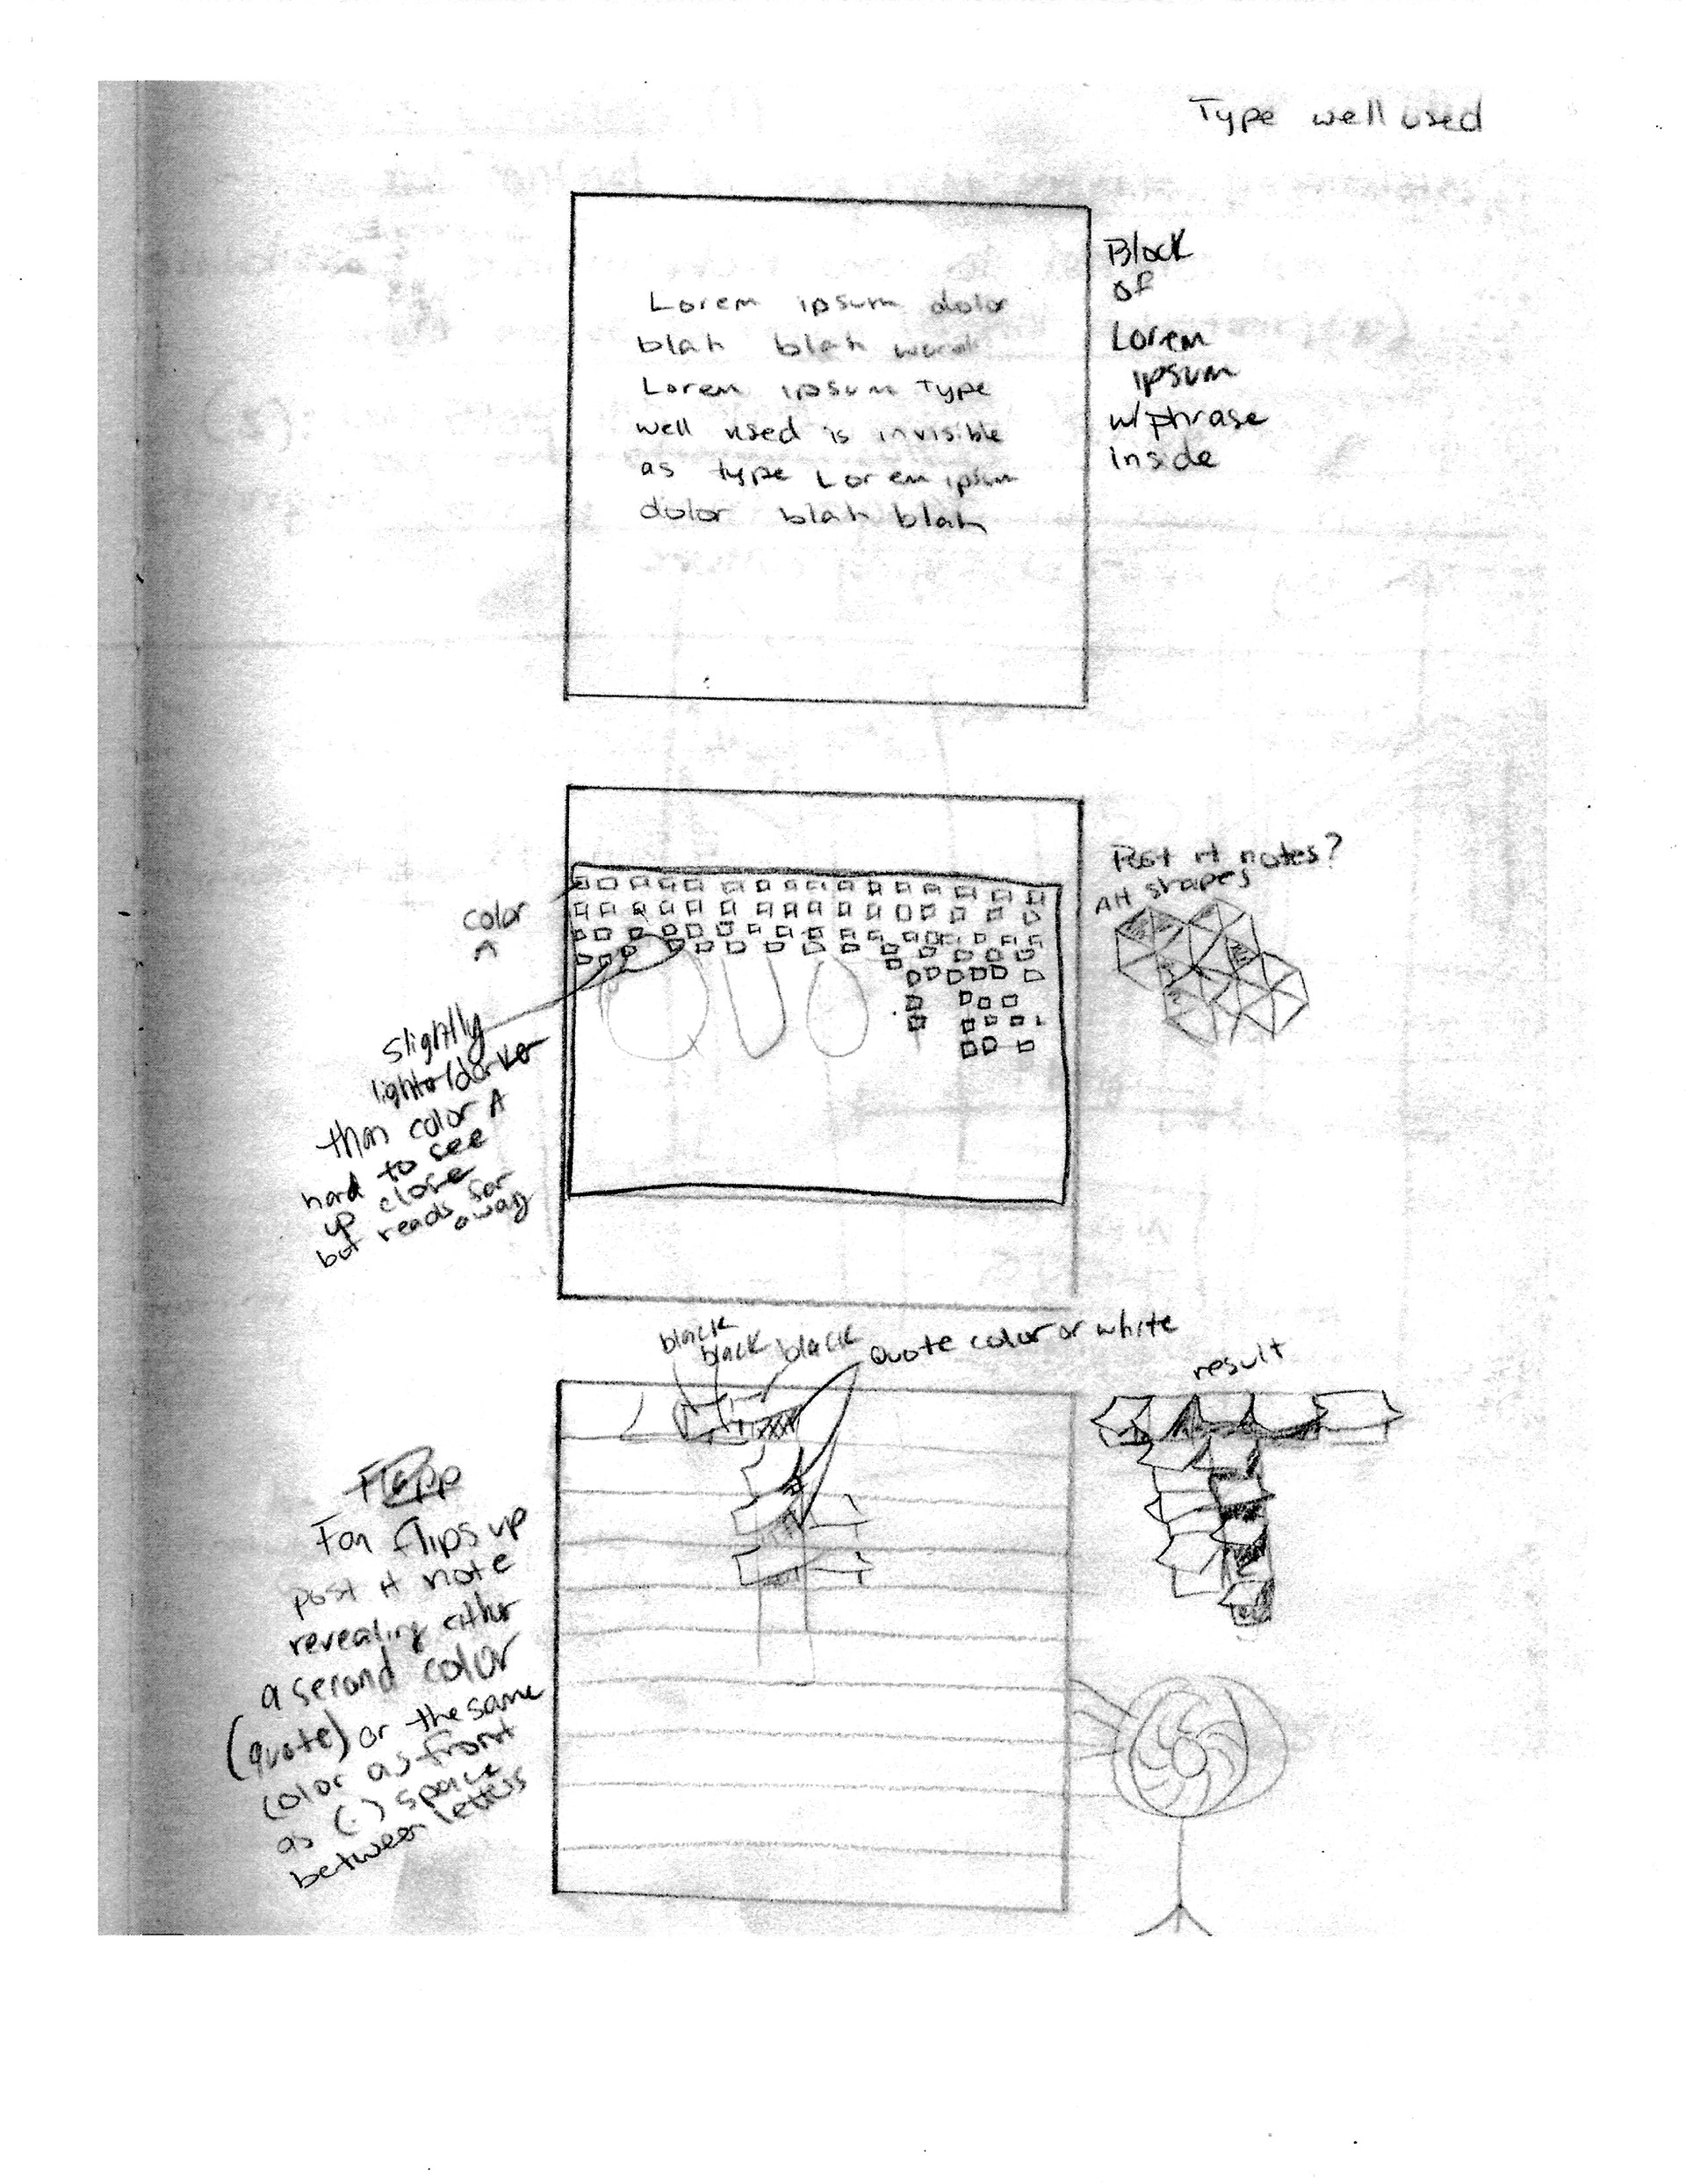 Type well used
Lorem ipsum dolor
blah blah words
Lorem ipsum Type
well used is invisible
as type Lorem ipsum
dolor blah blah
Block
of
Lorem
ipsum
w/phrase
inside
Post it notes?
Alt shapes
color
A
QUO
slightly
lighter/darker
than color A
hard to see
up close
but reads far
away
black
black
black
quote color or white
result
Fan flips up
post it note
revealing either
a second color
(quote) or the same
color as front
as (.) space
between letters